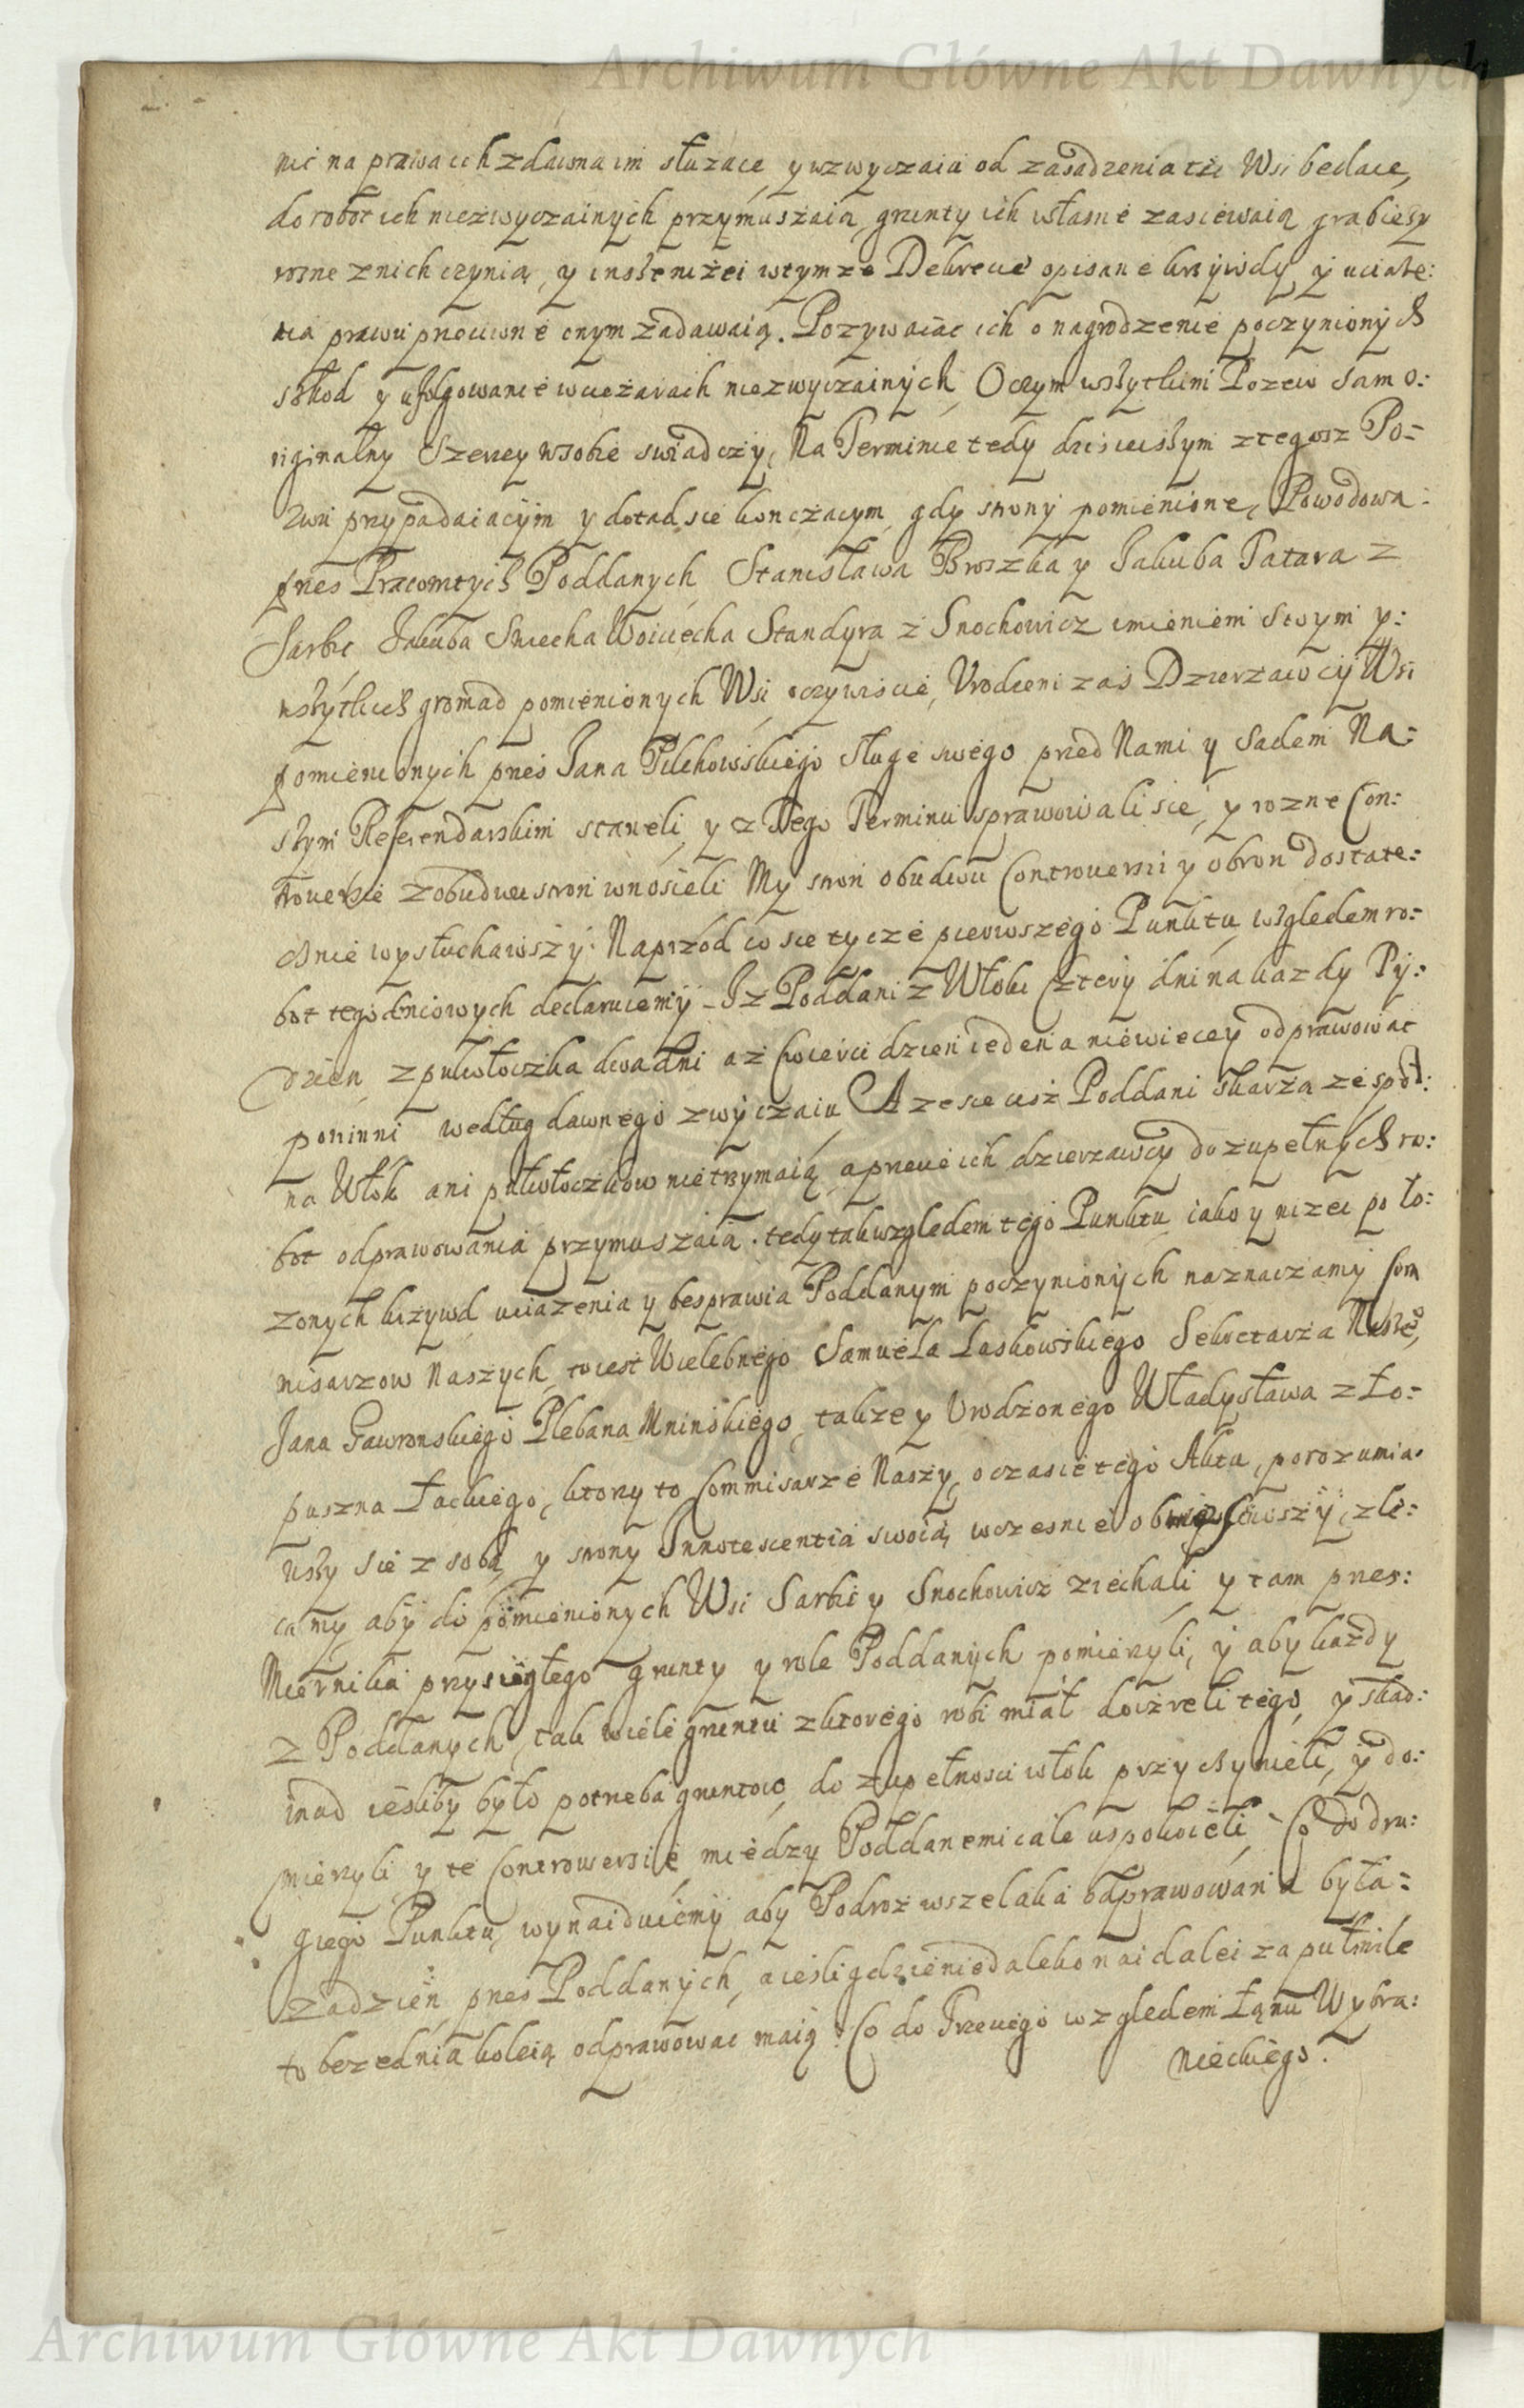 Archiwum Główne Akt Dawnych
nić na prawa ich zdawna im służące, y wzwyczaiu od zasadzenia tei Wsi będące,
do robot ich niezwyczainych przymuszaią, grunty ich własne zasiewaią, grabieszy
rozne znich czynią, y inszemi żei wtymże Dekrecie opisane krzywdy, y uciąże:
nia prawu przeciwne onym zadawaią. Pozywaiąc ich o nagrodzenie poczynionych
szkod y ufolgowanie wciężarach niezwyczainych, O czym wszytkim Pozew sam o:
riginalny szerzey wsobie swiadczy, Na Terminie tedy dzisieiszym ztegosz Po:
zwu przypadaiącym y dotąd się konczącym, gdy strony pomienione, Powodowa:
przes Pracowitych Poddanych Stanisława Broszka y Jakuba Tatara z
Sarbic Jakuba Sniecha Woiciecha Standyra z Snochowicz imieniem swym y:
wszytkich gromad pomienionych Wsi oczywiscie, Urodzeni zas Dzierzawcy Wsi
pomienionych przes Jana Pilchowskiego sługę swego przed Nami y Sądem Na:
szym Referendarskim stanęli, y z Tego Terminu sprawowali się, y rozne Con:
trouersie zobudwu stron wnosieli My stron obudwu Controuersii y obron dostate:
cznie wysłuchawszy. Naprzod co się tycze pierwszego Punktu, względem ro:
bot tegodniowych declaruiemy. Iż Poddani z Włoki cztery dni na kazdy Ty:
dzien, z pułwłoczka dwa dni a z cwierci dzien ieden a niewiecey odprawować
powinni według dawnego zwyczaiu, A ze się ciż Poddani skarzą ze spod:
na Włok ani pułwłoczkow nietrzymaią, a przecie ich dzierzawcy do zupełnych ro:
bot odprawowania przymuszaią. tedy tak względem tego Punktu, iako y nizei poło:
zonych krzywd uciązenia y besprawia Poddanym poczynionych naznaczamy Com
misarzow Naszych, to iest Wielebnego Samuela Laskowskiego Sekretarza Naszego,
Jana Gawronskiego Plebana Mninskiego, takze y Urodzonego Władysława z Ło:
puszna Łackiego, ktorzy to Commisarze Naszy, o czasie tego Aktu, porozumia:
wszy się z sobą, y strony Innotescentią swoią, wczesnie obwiesciwszy, zle:
camy, aby do pomienionych Wsi Sarbic y Snochowicz ziechali, y tam przes:
Miernika przysięgłego grunty y role Poddanych pomierzyli, y aby kazdy
z Poddanych, tak wiele gruntu z ktorego robi miał doizreli tego, y skąd:
inąd iesliby było potrzeba gruntow, do zupełnosci włok przyczynieli, y do:
mierzyli, y te Controwersiie między Poddanemi cale uspokoieli, Co do dru:
giego Punktu, wynaiduiemy aby Podroz wszelaka odprawowana była:
za dzień, przes Poddanych, a iesli gdzie niedaleko nai dalei za pułmile
to bezednia koleią odprawować maią. Co do Trzeciego względem Łanu Wybra:
nieckiego.
Archiwum Główne Akt Dawnych